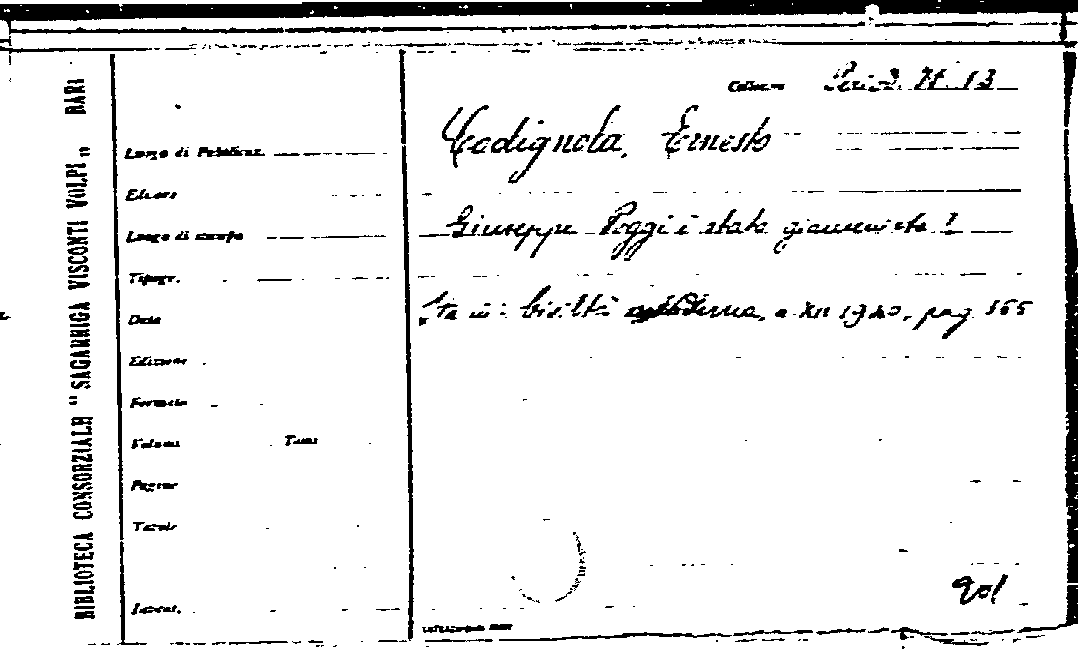 BIBLIOTECA CONSORZIALE "SAGARRIGA VISCONTI VOLPI" BARI
Collocaz. Period. H. 13
Codignola, Ernesto
Giuseppe Poggi è stato giansenista?
Sta in: Civiltà moderna, a XII 1940, pag
Luogo di Pubblicaz.
Editore
Luogo di stampa
Tipogr.
Data
Edizione
Formato
Volumi Tomi
Pagine
Tavole
Invent.
901